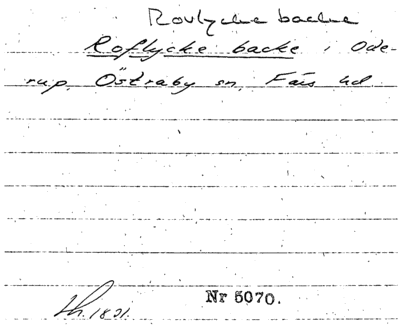 Rovlycke backe
Roflycke backe, i Ode-
rup, Östraby sn. Färs hd.
Lh. 1821.
Nr 5070.